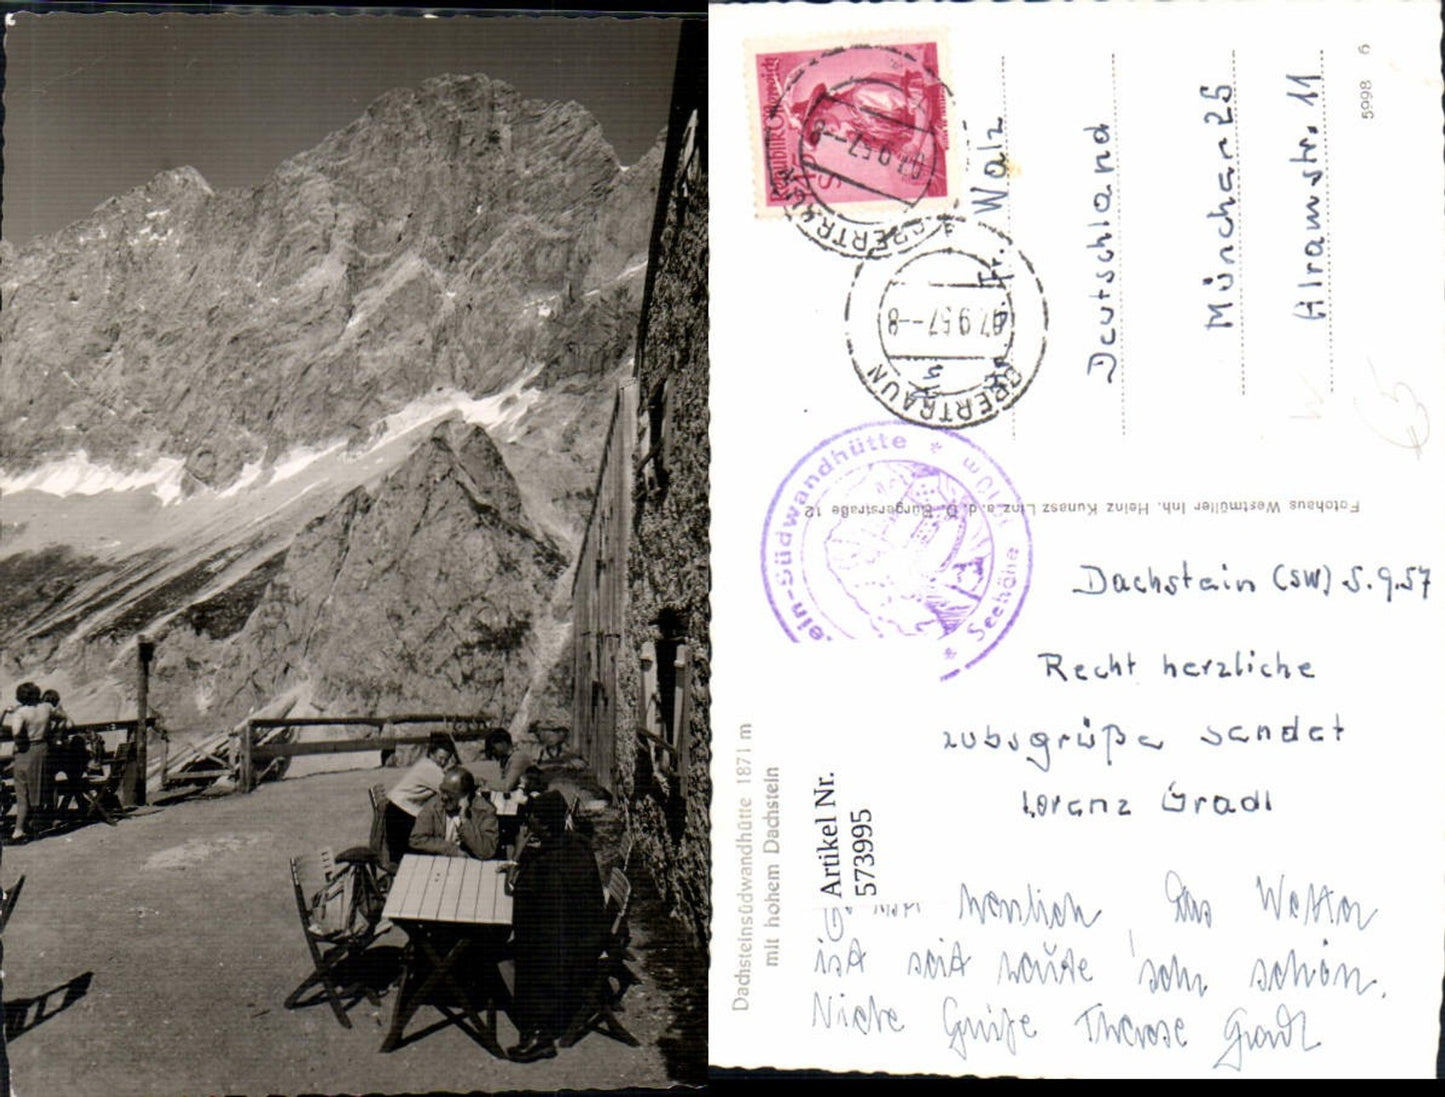 Republik Österreich
OBERTRAUN
-7.9.57--8
OBERTRAUN
Fr. Walz
Deutschland
München 25
Alramstr. 11
5998 6
Fotohaus Westmüller Inh. Heinz Kunasz Linz a. d. D. Bürgerstraße 12
ein-Südwandhütte * * Seehöhe
Dachstein (SW) 5.9.57
Recht herzliche
sendet
Lorenz Gradl
Artikel Nr.
573995
Dachsteinsüdwandhütte 1871 m
mit hohem Dachstein
herzlich Das Wetter
ist seit heute sehr schön.
Viele Grüße Therese Gradl